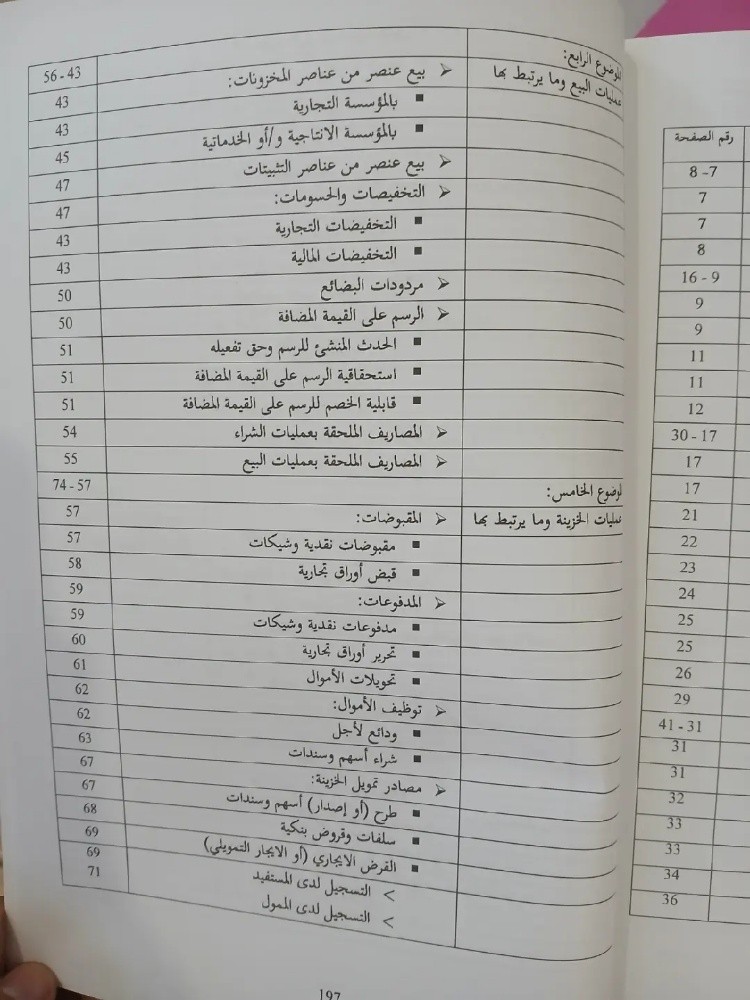 رقم الصفحة
8 -7
7
7
8
16 - 9
9
9
11
11
12
30 - 17
17
17
21
22
23
24
25
25
26
29
41 - 31
31
31
32
33
33
34
36
الموضوع الرابع: 56 - 43
عمليات البيع وما يرتبط بها ➢ بيع عنصر من عناصر المخزونات: 43
▪ بالمؤسسة التجارية 43
▪ بالمؤسسة الانتاجية و/أو الخدماتية 45
➢ بيع عنصر من عناصر التثبيتات 47
➢ التخفيصات والحسومات: 47
▪ التخفيضات التجارية 43
▪ التخفيضات المالية 43
➢ مردودات البضائع 50
➢ الرسم على القيمة المضافة 50
▪ الحدث المنشئ للرسم وحق تفعيله 51
▪ استحقاقية الرسم على القيمة المضافة 51
▪ قابلية الخصم للرسم على القيمة المضافة 51
➢ المصاريف الملحقة بعمليات الشراء 54
➢ المصاريف الملحقة بعمليات البيع 55
لموضوع الخامس: 74 - 57
عمليات الخزينة وما يرتبط بها ➢ المقبوضات: 57
▪ مقبوضات نقدية وشيكات 57
▪ قبض أوراق تجارية 58
➢ المدفوعات: 59
▪ مدفوعات نقدية وشيكات 59
▪ تحرير أوراق تجارية 60
▪ تحويلات الأموال 61
➢ توظيف الأموال: 62
▪ ودائع لأجل 62
▪ شراء أسهم وسندات 63
➢ مصادر تمويل الخزينة: 67
▪ طرح (أو إصدار) أسهم وسندات 67
▪ سلفات وقروض بنكية 68
▪ القرض الايجاري (أو الايجار التمويلي) 69
> التسجيل لدى المستفيد 69
> التسجيل لدى الممول 71
197